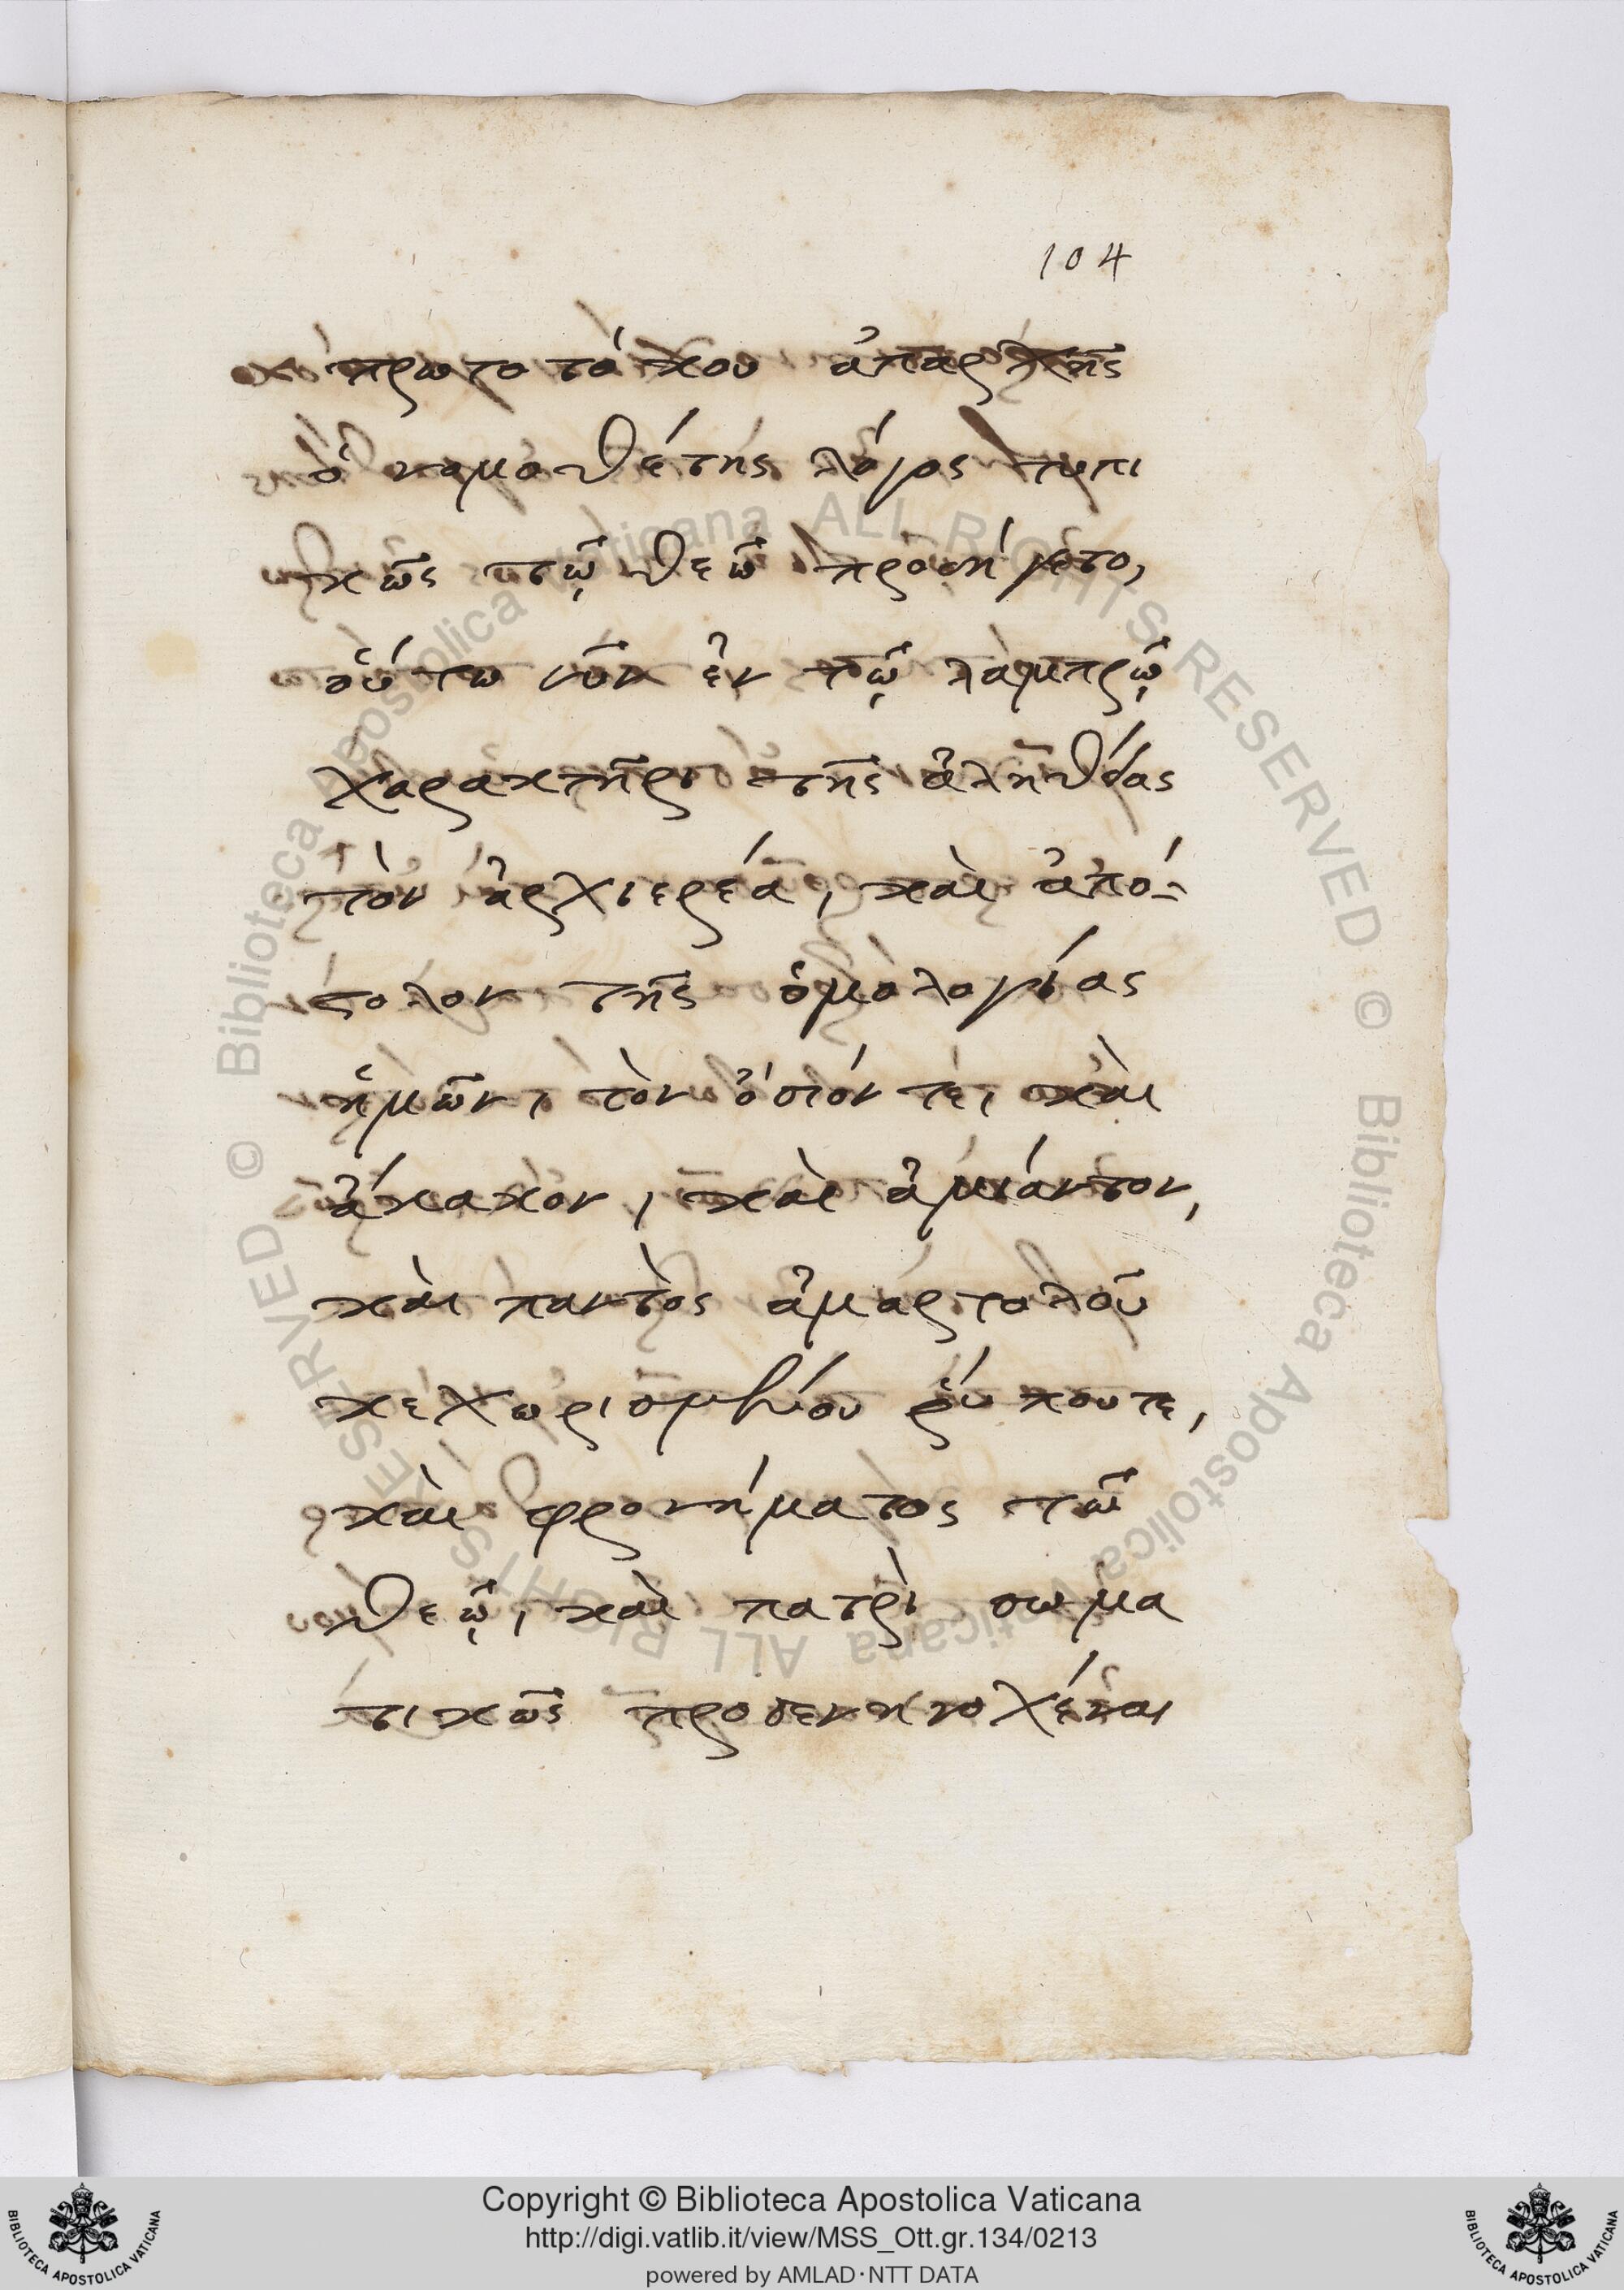 104
πρωτοτόκου ἀπαρχῆς
ὁ νομοθέτης λόγος τυπι
κῶς τῷ θεῷ προσήγετο,
οὕτω νῦν ἐν τῷ λαμπρῷ
χαρακτῆρι τῆς ἀληθείας
τὸν ἀρχιερέα, καὶ ἀπό-
στολον τῆς ὁμολογίας
ἡμῶν, τὸν ὅσιόν τε, καὶ
ἄκακον, καὶ ἀμίαντον,
καὶ παντὸς ἁμαρτολοῦ
κεχωρισμένου ῥύπου τε,
καὶ φρονήματος τῶ
θεῷ, καὶ πατρὶ σωμα
τικῶς προσενηνοχέναι
Copyright © Biblioteca Apostolica Vaticana
http://digi.vatlib.it/view/MSS_Ott.gr.134/0213
powered by AMLAD·NTT DATA
BIBLIOTECA APOSTOLICA VATICANA
BIBLIOTECA APOSTOLICA VATICANA
© Biblioteca Apostolica Vaticana ALL RIGHTS RESERVED
© Biblioteca Apostolica Vaticana ALL RIGHTS RESERVED